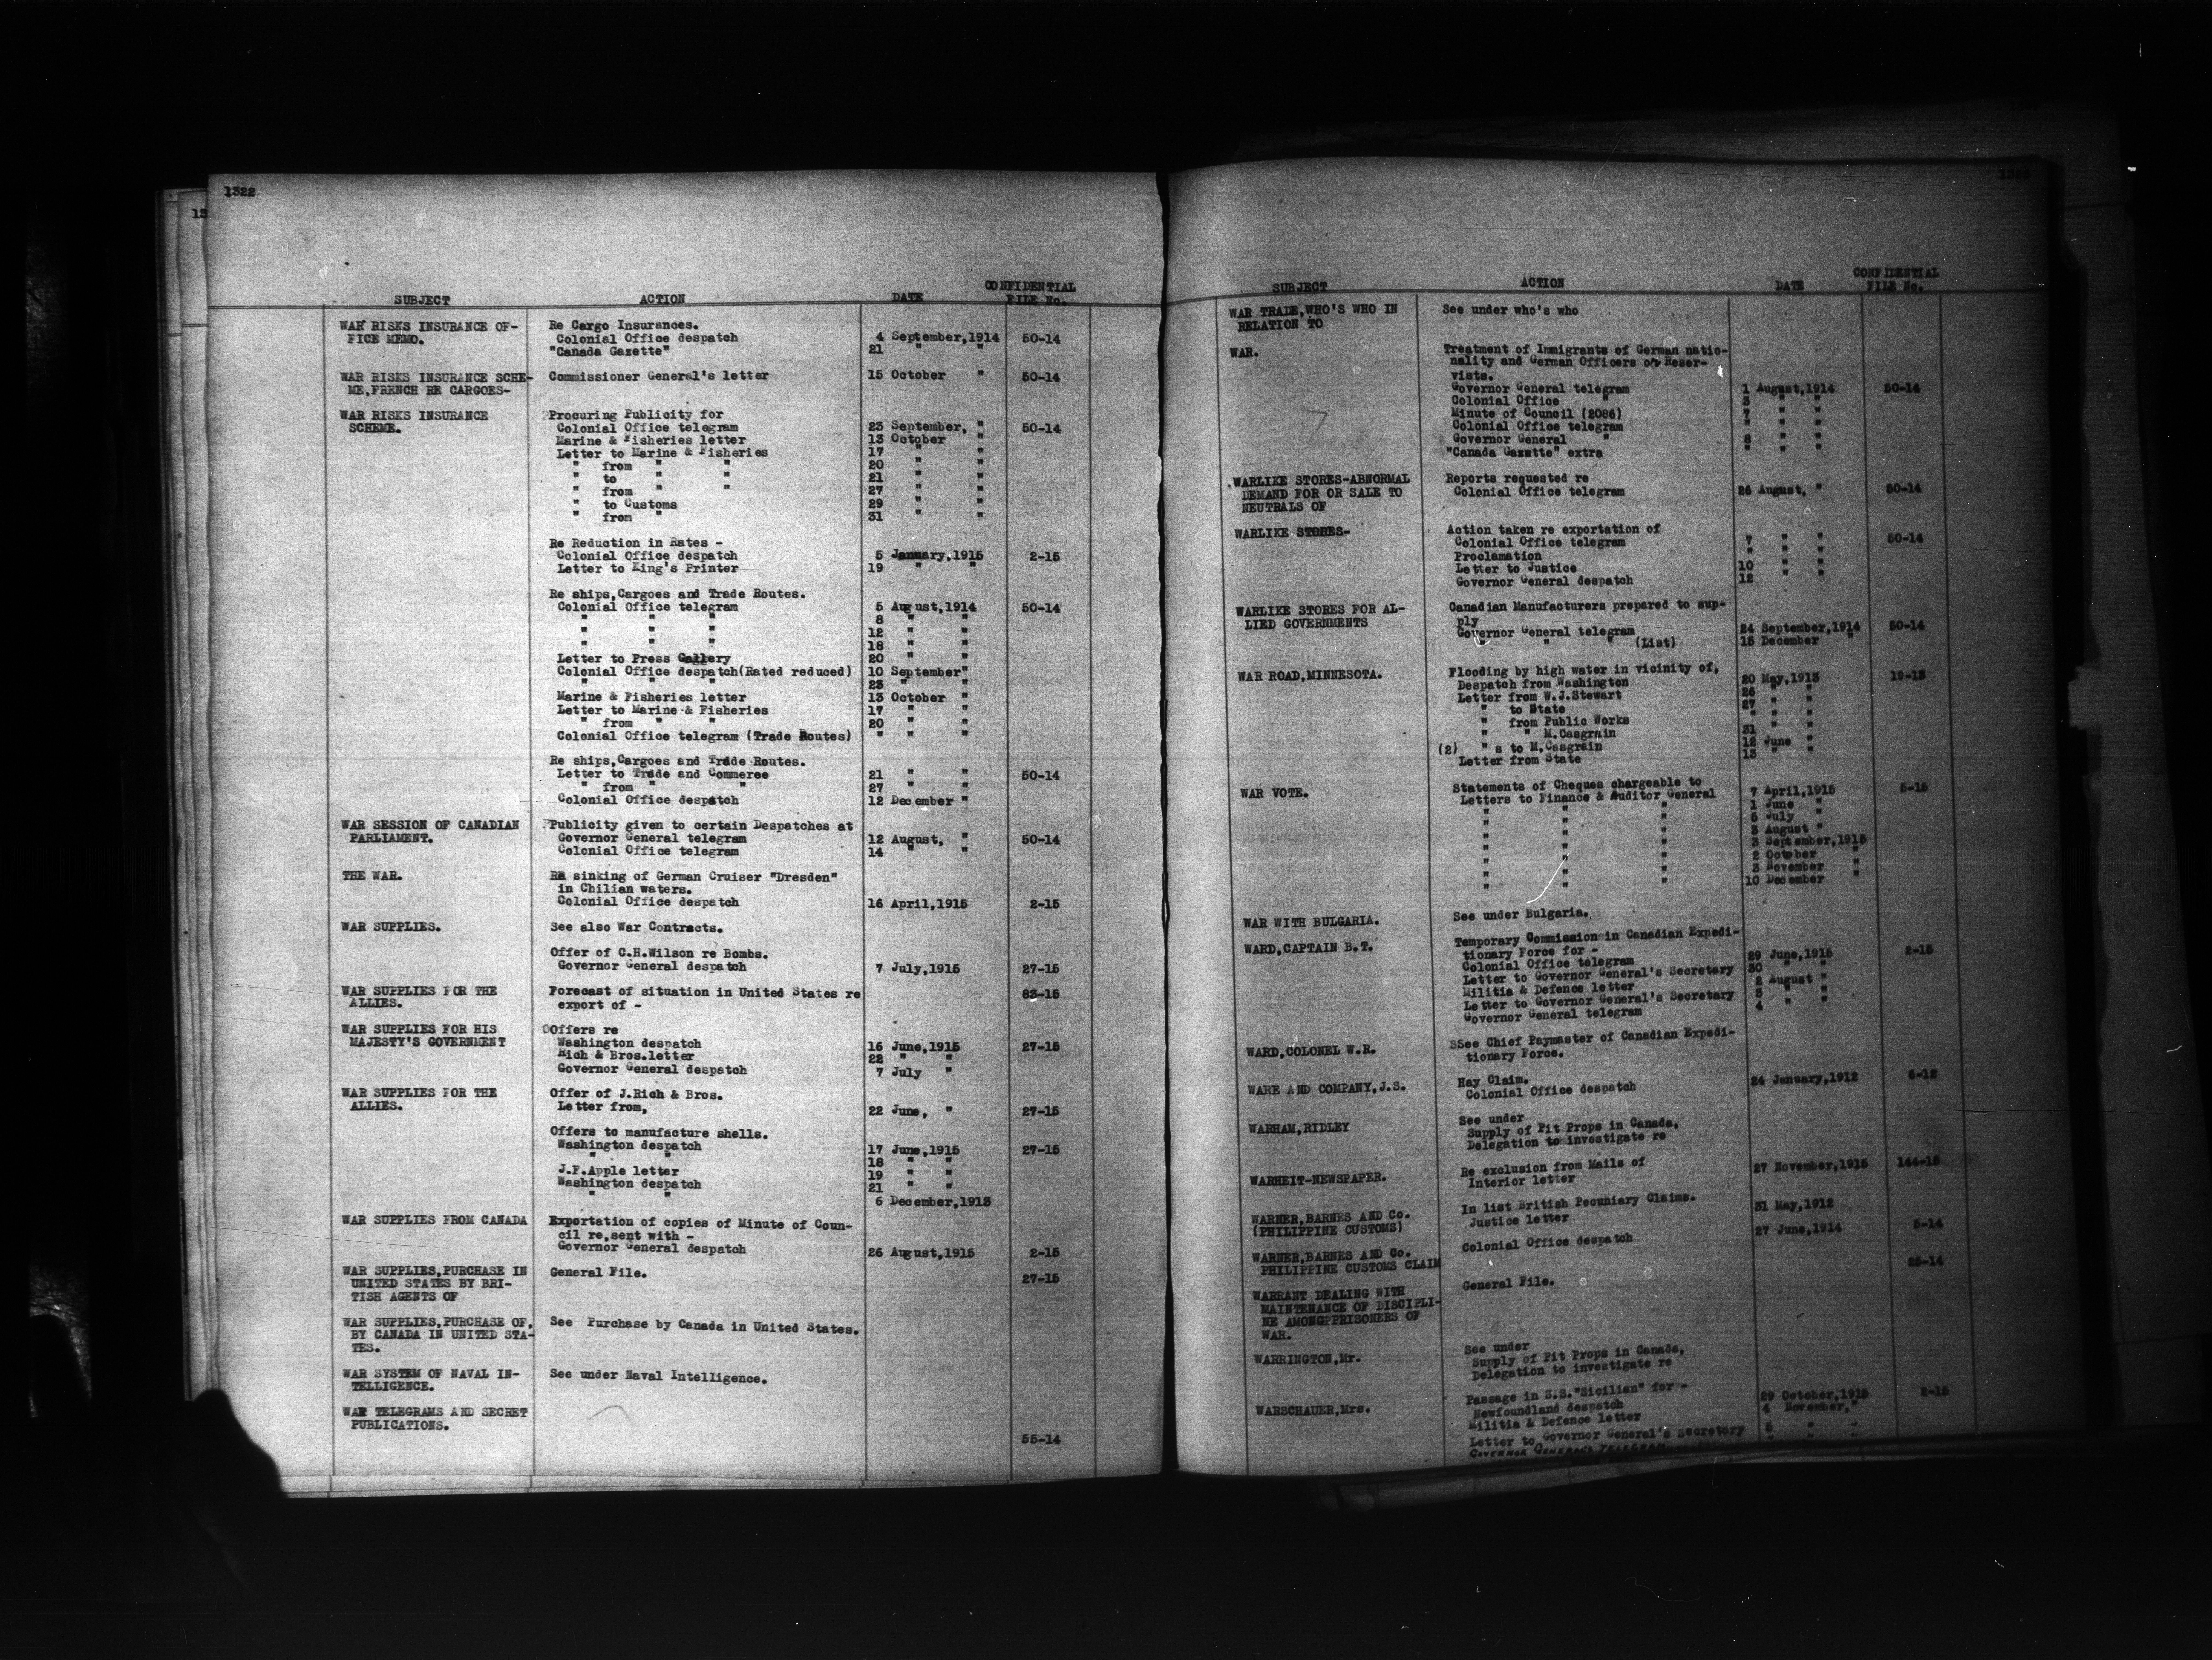 1322
13
SUBJECT ACTION DATE CONFIDENTIAL FILE No.
WAR RISKS INSURANCE OF- Re Cargo Insurances.
FICE MEMO. Colonial Office despatch 4 September,1914 50-14
"Canada Gazette" 21 " "
WAR RISKS INSURANCE SCHE- Commissioner General's letter 15 October " 50-14
ME,FRENCH RE CARGOES-
WAR RISKS INSURANCE Procuring Publicity for
SCHEME. Colonial Office telegram 23 September, " 50-14
Marine & Fisheries letter 13 October "
Letter to Marine & Fisheries 17 " "
" from " " 20 " "
" to " " 21 " "
" from " " 27 " "
" to Customs 29 " "
" from " 31 " "
Re Reduction in Rates -
Colonial Office despatch 5 January,1915 2-15
Letter to King's Printer 19 " "
Re ships,Cargoes and Trade Routes.
Colonial Office telegram 5 August,1914 50-14
" " " 8 " "
" " " 12 " "
" " " 18 " "
Letter to Press Gallery 20 " "
Colonial Office despatch(Rated reduced) 10 September"
" " " 23 " "
Marine & Fisheries letter 13 October "
Letter to Marine & Fisheries 17 " "
" from " " 20 " "
Colonial Office telegram (Trade Routes) " " "
Re ships,Cargoes and Trade Routes.
Letter to Trade and Commerce 21 " " 50-14
" from " " 27 " "
Colonial Office despatch 12 December "
WAR SESSION OF CANADIAN Publicity given to certain Despatches at
PARLIAMENT. Governor General telegram 12 August, " 50-14
Colonial Office telegram 14 " "
THE WAR. Re sinking of German Cruiser "Dresden"
in Chilian waters.
Colonial Office despatch 16 April,1915 2-15
WAR SUPPLIES. See also War Contracts.
Offer of C.H.Wilson re Bombs.
Governor General despatch 7 July,1915 27-15
WAR SUPPLIES FOR THE Forecast of situation in United States re 83-15
ALLIES. export of -
WAR SUPPLIES FOR HIS Offers re
MAJESTY'S GOVERNMENT Washington despatch 16 June,1915 27-15
Rich & Bros.letter 22 " "
Governor General despatch 7 July "
WAR SUPPLIES FOR THE Offer of J.Rich & Bros.
ALLIES. Letter from, 22 June, " 27-15
Offers to manufacture shells.
Washington despatch 17 June,1915 27-15
" " 18 " "
J.F.Apple letter 19 " "
Washington despatch 21 " "
" " 6 December,1913
WAR SUPPLIES FROM CANADA Exportation of copies of Minute of Coun-
cil re,sent with -
Governor General despatch 26 August,1915 2-15
WAR SUPPLIES,PURCHASE IN General File. 27-15
UNITED STATES BY BRI-
TISH AGENTS OF
WAR SUPPLIES,PURCHASE OF, See Purchase by Canada in United States.
BY CANADA IN UNITED STA-
TES.
WAR SYSTEM OF NAVAL IN- See under Naval Intelligence.
TELLIGENCE.
WAR TELEGRAMS AND SECRET
PUBLICATIONS. 55-14
SUBJECT ACTION DATE CONFIDENTIAL FILE No.
WAR TRADE,WHO'S WHO IN See under who's who
RELATION TO
WAR. Treatment of Immigrants of German natio-
nality and German Officers or Reser-
vists.
Governor General telegram 1 August,1914 50-14
Colonial Office " 3 " "
Minute of Council (2086) 7 " "
Colonial Office telegram " " "
Governor General " 8 " "
"Canada Gazette" extra " " "
WARLIKE STORES-ABNORMAL Reports requested re
DEMAND FOR OR SALE TO Colonial Office telegram 26 August, " 50-14
NEUTRALS OF
WARLIKE STORES- Action taken re exportation of
Colonial Office telegram 7 " " 50-14
Proclamation " " "
Letter to Justice 10 " "
Governor General despatch 12 " "
WARLIKE STORES FOR AL- Canadian Manufacturers prepared to sup-
LIED GOVERNMENTS ply
Governor General telegram 24 September,1914 50-14
" " " (List) 15 December "
WAR ROAD,MINNESOTA. Flooding by high water in vicinity of,
Despatch from Washington 20 May,1913 19-13
Letter from W.J.Stewart 26 " "
" to State 27 " "
" from Public Works " " "
" " M.Casgrain 31 " "
(2) " s to M.Casgrain 12 June "
Letter from State 13 " "
WAR VOTE. Statements of Cheques chargeable to
Letters to Finance & Auditor General 7 April,1915 5-15
" " " 1 June "
" " " 5 July "
" " " 3 August "
" " " 3 September,1915
" " " 2 October "
" " " 3 November "
" " " 10 December "
WAR WITH BULGARIA. See under Bulgaria.
WARD,CAPTAIN B.T. Temporary Commission in Canadian Expedi-
tionary Force for -
Colonial Office telegram 29 June,1915 2-15
Letter to Governor General's Secretary 30 " "
Militia & Defence letter 2 August "
Letter to Governor General's Secretary 3 " "
Governor General telegram 4 " "
WARD,COLONEL W.R. See Chief Paymaster of Canadian Expedi-
tionary Force.
WARE AND COMPANY,J.S. Hay Claim.
Colonial Office despatch 24 January,1912 6-12
WARHAM,RIDLEY See under
Supply of Pit Props in Canada,
Delegation to investigate re
WARHEIT-NEWSPAPER. Re exclusion from Mails of
Interior letter 27 November,1915 144-15
WARNER,BARNES AND Co. In list British Pecuniary Claims.
(PHILIPPINE CUSTOMS) Justice letter 31 May,1912
WARNER,BARNES AND Co. Colonial Office despatch 27 June,1914 5-14
PHILIPPINE CUSTOMS CLAIM
WARRANT DEALING WITH General File. 25-14
MAINTENANCE OF DISCIPLI-
NE AMONGPPRISONERS OF
WAR.
WARRINGTON,Mr. See under
Supply of Pit Props in Canada,
Delegation to investigate re
WARSCHAUER,Mrs. Passage in S.S."Sicilian" for -
Newfoundland despatch 29 October,1915 2-15
Militia & Defence letter 4 November,"
Letter to Governor General's Secretary 5 " "
GOVERNOR GENERAL'S TELEGRAM